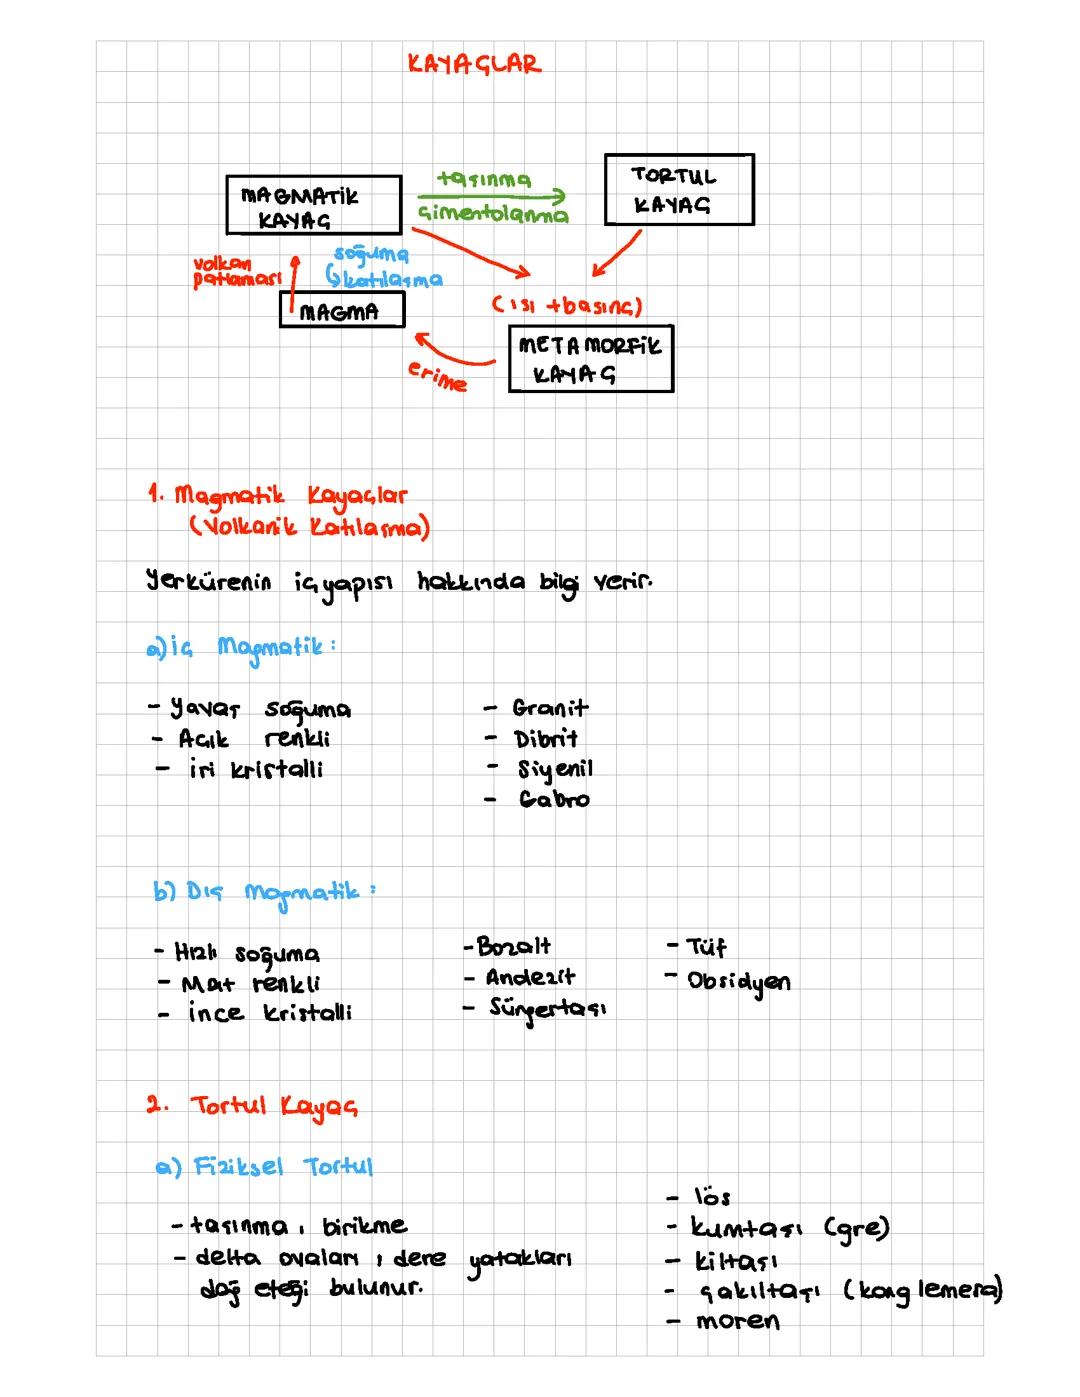 KAYAÇLAR
MAGMATİK
KAYAÇ
taşınma
çimentolanma
TORTUL
KAYAÇ
volkan
patlaması
soğuma
↳katılaşma
MAGMA
(ısı +basınç)
METAMORFİK
KAYAÇ
erime
1. Magmatik Kayaçlar
(Volkanik Katılaşma)
Yerkürenin iç yapısı hakkında bilgi verir.
a) İç Magmatik:
- Yavaş soğuma
- Açık renkli
- iri kristalli
- Granit
- Dibrit
- Siyenil
- Gabro
b) Dış Magmatik:
- Hızlı soğuma
- Mat renkli
- ince kristalli
- Bazalt
- Andezit
- Süngertaşı
- Tüf
- Obsidyen
2. Tortul Kayaç
a) Fiziksel Tortul
- taşınma, birikme
- delta ovaları, dere yatakları
dağ eteği bulunur.
- lös
- kumtaşı (gre)
- kiltaşı
- çakıltaşı (konglemera)
- moren